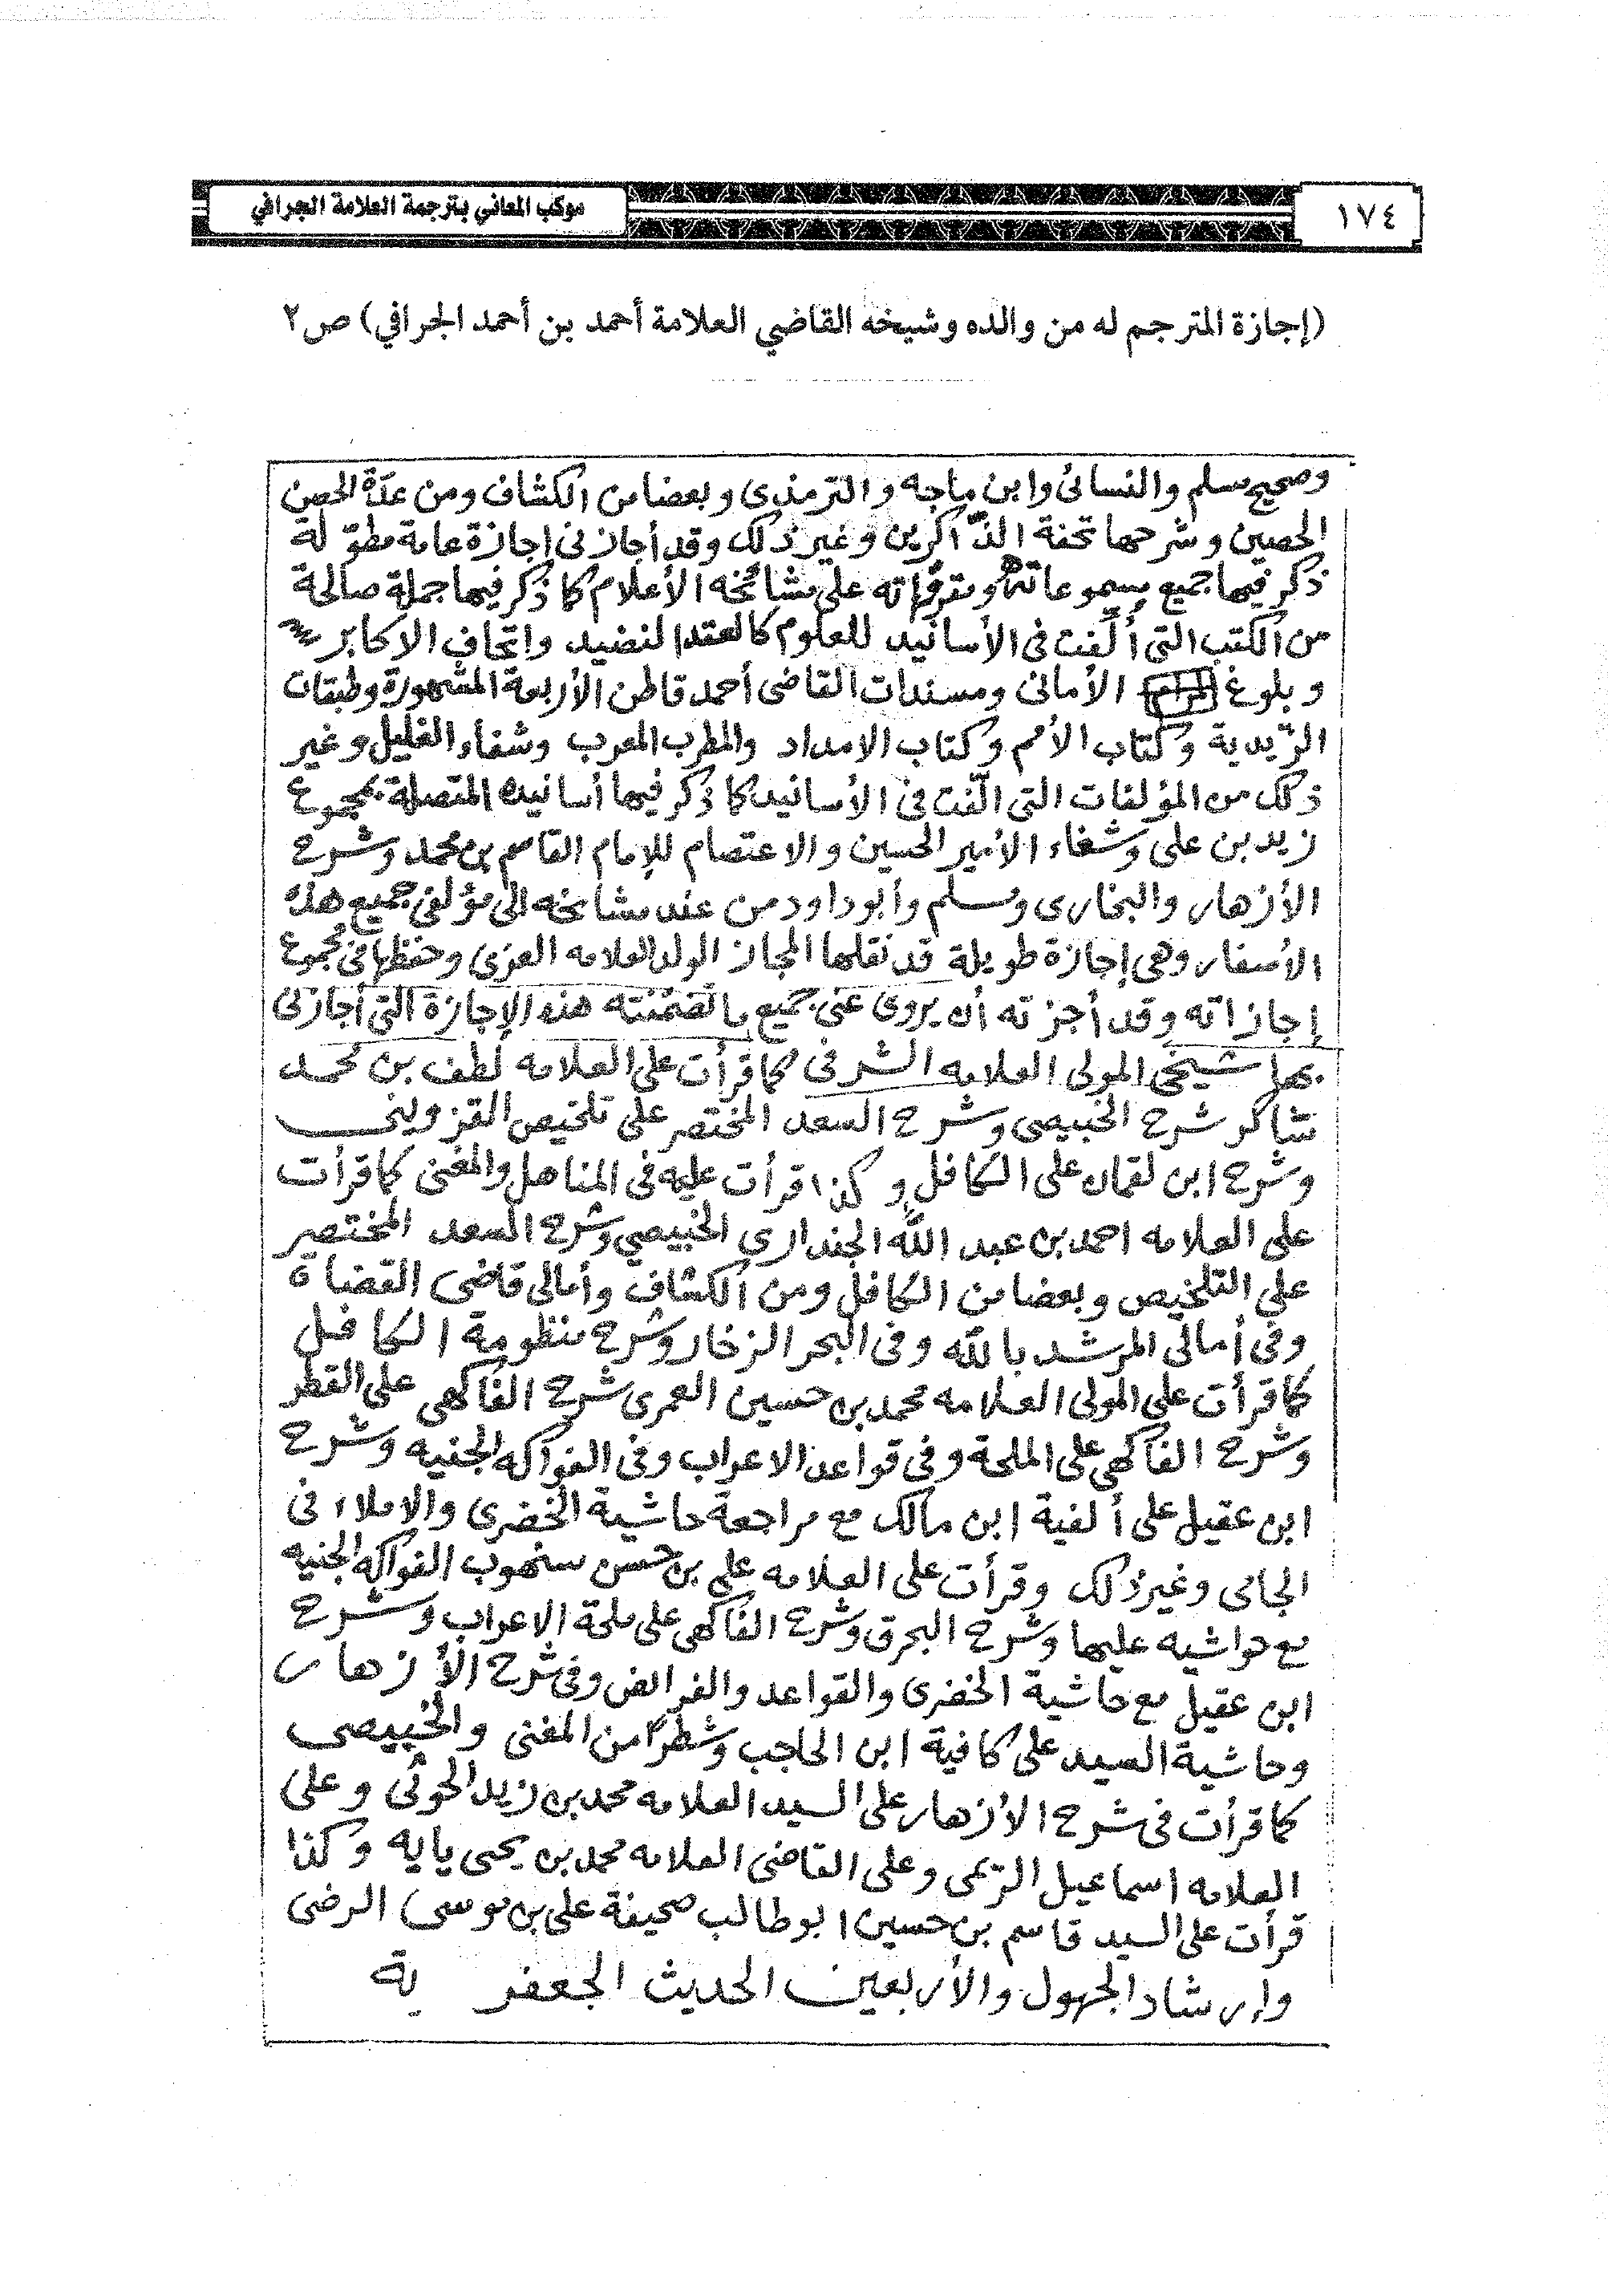 ١٧٤
موكب المعاني بترجمة العلامة الجرافي
(إجازة المترجم له من والده وشيخه القاضي العلامة أحمد بن أحمد الجرافي) ص٢
وصحيح مسلم والنسائى وابن ماجه والترمذى وبعضا من الكشاف ومن عدّة الحصن
الحصين وشرحها تحفة الذّاكرين وغير ذلك وقد أجازنى إجازة عامة مطوّلة
ذكر فيها جميع مسموعاته ومقروّاته على مشائخه الأعلام كما ذكر فيها جملة صالحة
من الكتب التى أُلّفت فى الأسانيد للعلوم كالعقد النضيد واتحاف الاكابر
وبلوغ الأمانى ومسندات القاضى أحمد قاطن الأربعة المشهورة وطبقات
الزّيدية وكتاب الأمم وكتاب الامداد والمطرب المعرب وشفاء الغليل وغير
ذلك من المؤلفات التى الّفت فى الأسانيد كما ذكر فيها أسانيده المتصلة بمجموع
زيد بن على وشفاء الأمير الحسين والاعتصام للإمام القاسم بن محمد وشرح
الأزهار والبخارى ومسلم وأبو داود من عند مشائخه الى مؤلفى جميع هذه
الأسفار وهى إجازة طويلة قد نقلها المجاز الولد العلامه العزى وحفظها فى مجموع
إجازاته وقد أجزته أن يروى عنى جميع ما تضمّنته هذه الإجازة التى أجازنى
بها شيخى المولى العلامه الشرفى كما قرأت على العلامه لطف بن محمد
شاكر شرح الخبيصى وشرح السعد المختصر على تلخيص القزوينى
وشرح ابن لقمان على الكافل وكذا قرأت عليه فى المناهل والمغنى كما قرأت
على العلامه احمد بن عبد الله الجندارى الخبيصي وشرح السعد المختصر
على التلخيص وبعضا من الكافل ومن الكشاف وأمالى قاضى القضاة
وفى أمالى المرشد بالله وفى البحر الزخار وشرح منظومة الكافل
كما قرأت على المولى العلامه محمد بن حسين العمرى شرح الفاكهى على القطر
وشرح الفاكهى على الملحة وفى قواعد الاعراب وفى الفواكه الجنيه وشرح
ابن عقيل على ألفية ابن مالك مع مراجعة حاشية الخضرى والاملاء فى
الجامى وغير ذلك وقرأت على العلامه على بن حسن سنهوب الفواكه الجنيه
مع حواشيه عليها وشرح البحرق وشرح الفاكهى على ملحة الاعراب وشرح
ابن عقيل مع حاشية الخضرى والقواعد والفرائض وفى شرح الأزهار
وحاشية السيد على كافية ابن الحاجب وشطرًا من المغنى والخبيصى
كما قرأت فى شرح الأزهار على السيد العلامه محمد بن زيد الحوثى وعلى
العلامه اسماعيل الريمى وعلى القاضى العلامه محمد بن يحيى يايه وكذا
قرأت على السيد قاسم بن حسين ابو طالب صحيفة على بن موسى الرضى
وإرشاد الجهول والأربعين الحديث الجعفرية